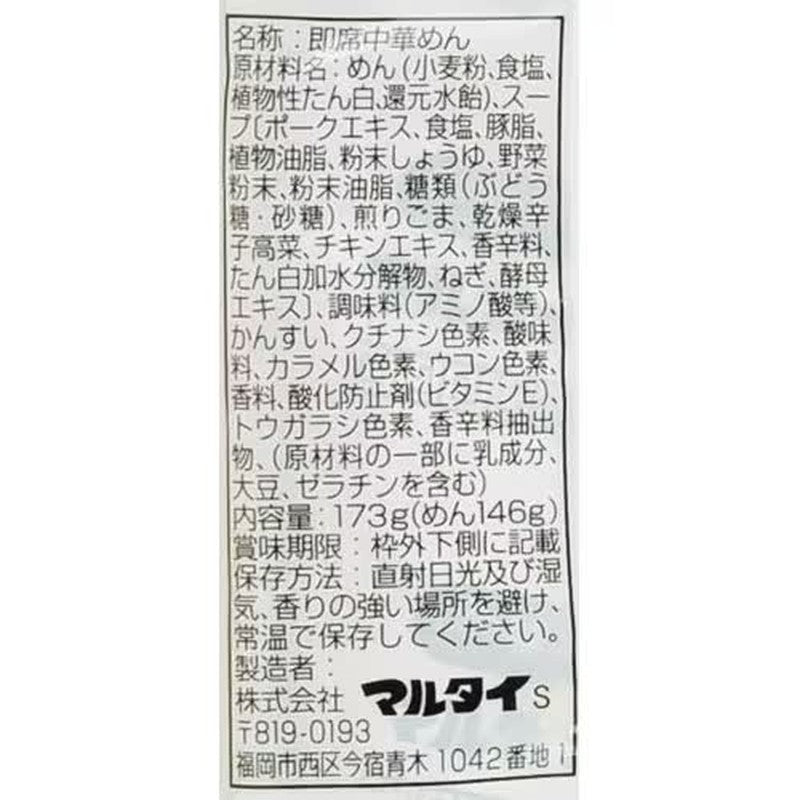 名称：即席中華めん
原材料名：めん(小麦粉、食塩、
植物性たん白、還元水飴)、スー
プ〔ポークエキス、食塩、豚脂、
植物油脂、粉末しょうゆ、野菜
粉末、粉末油脂、糖類(ぶどう
糖・砂糖)、煎りごま、乾燥辛
子高菜、チキンエキス、香辛料、
たん白加水分解物、ねぎ、酵母
エキス〕、調味料(アミノ酸等)、
かんすい、クチナシ色素、酸味
料、カラメル色素、ウコン色素、
香料、酸化防止剤(ビタミンE)、
トウガラシ色素、香辛料抽出
物、(原材料の一部に乳成分、
大豆、ゼラチンを含む)
内容量：173g(めん146g)
賞味期限：枠外下側に記載
保存方法：直射日光及び湿
気、香りの強い場所を避け、
常温で保存してください。
製造者：
株式会社 マルタイ S
〒819-0193
福岡市西区今宿青木1042番地1